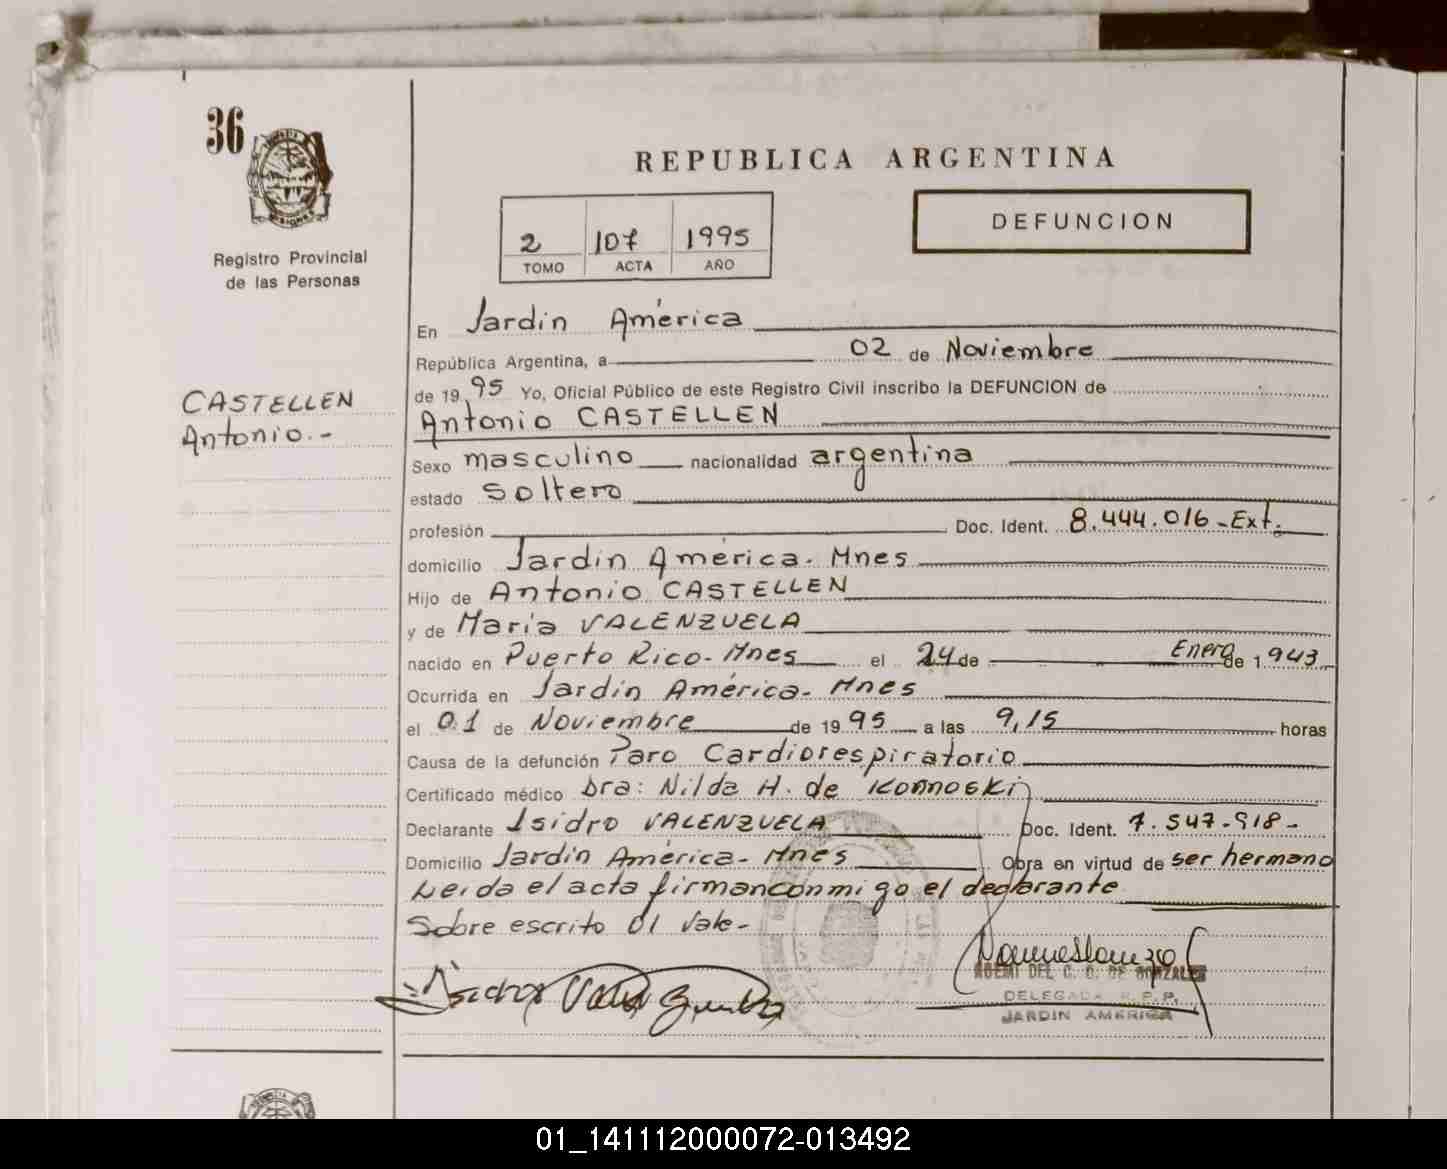 36
Registro Provincial
de las Personas
CASTELLEN
Antonio.-
REPUBLICA ARGENTINA
2 107 1995
TOMO ACTA AÑO
DEFUNCION
En Jardín América
República Argentina, a 02 de Noviembre
de 1995 Yo, Oficial Público de este Registro Civil inscribo la DEFUNCION de
Antonio CASTELLEN
Sexo masculino nacionalidad argentina
estado Soltero
profesión Doc. Ident. 8.444.016-Ext.
domicilio Jardín América. Mnes
Hijo de Antonio CASTELLEN
y de María VALENZUELA
nacido en Puerto Rico-Mnes el 24 de Enero de 1.943
Ocurrida en Jardín América- Mnes
el 01 de Noviembre de 1995 a las 9,15 horas
Causa de la defunción Paro Cardiorespiratorio
Certificado médico Dra: Nilda H. de
Declarante Isidro VALENZUELA Doc. Ident. 7.547.918-
Domicilio Jardín América- Mnes Obra en virtud de ser hermano
Leida el acta firman conmigo el declarante
Sobre escrito 01 Vale-
NOEMI DEL C. G. DE GONZALEZ
DELEGADA R.P.P.
JARDIN AMERICA
01_141112000072-013492